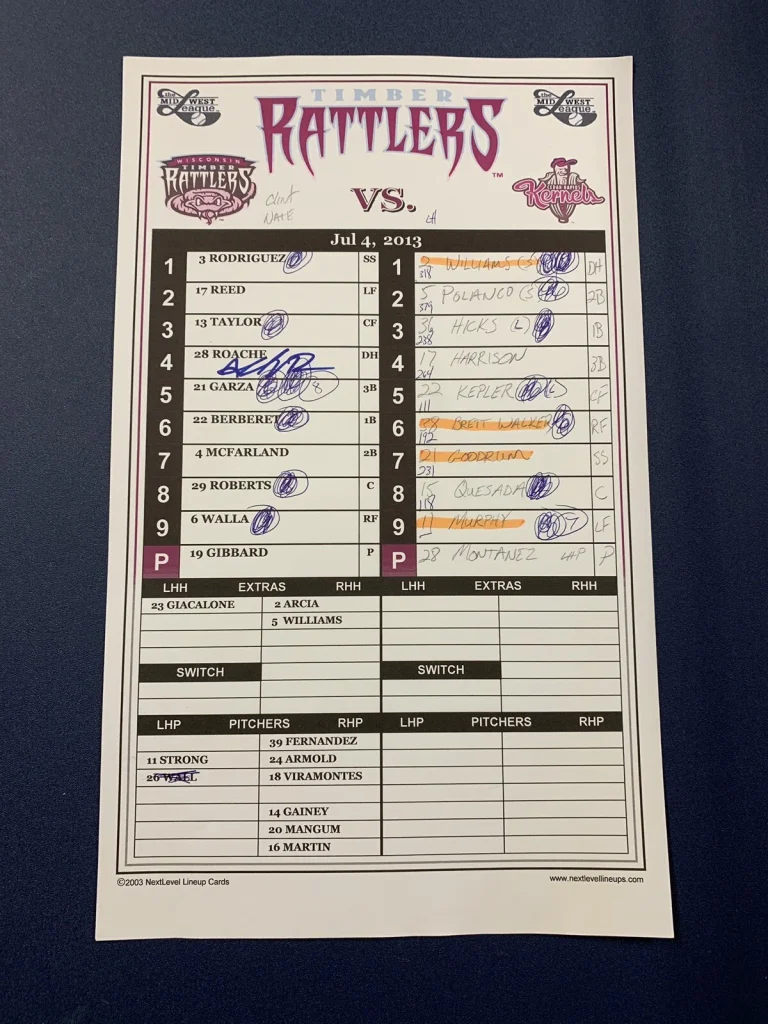 the MIDWEST League
TIMBER
RATTLERS™
the MIDWEST League
WISCONSIN
TIMBER
RATTLERS
Clint
NATE
VS.
LH
CEDAR RAPIDS
Kernels
Jul 4, 2013
1 3 RODRIGUEZ SS 1 2 WILLIAMS (S) DH
318
2 17 REED LF 2 5 POLANCO (S) 2B
379
3 13 TAYLOR CF 3 36 HICKS (L) 1B
238
4 28 ROACHE DH 4 17 HARRISON 3B
264
5 21 GARZA 8 3B 5 22 KEPLER (L) CF
111
6 22 BERBERET 1B 6 38 BRETT WALKER RF
192
7 4 MCFARLAND 2B 7 21 GOODRUM SS
231
8 29 ROBERTS C 8 15 QUESADA C
118
9 6 WALLA RF 9 11 MURPHY 7 LF
P 19 GIBBARD P P 28 MONTANEZ LHP P
LHH EXTRAS RHH LHH EXTRAS RHH
23 GIACALONE 2 ARCIA
5 WILLIAMS
SWITCH SWITCH
LHP PITCHERS RHP LHP PITCHERS RHP
39 FERNANDEZ
11 STRONG 24 ARMOLD
26 WALL 18 VIRAMONTES
14 GAINEY
20 MANGUM
16 MARTIN
©2003 NextLevel Lineup Cards www.nextlevellineups.com